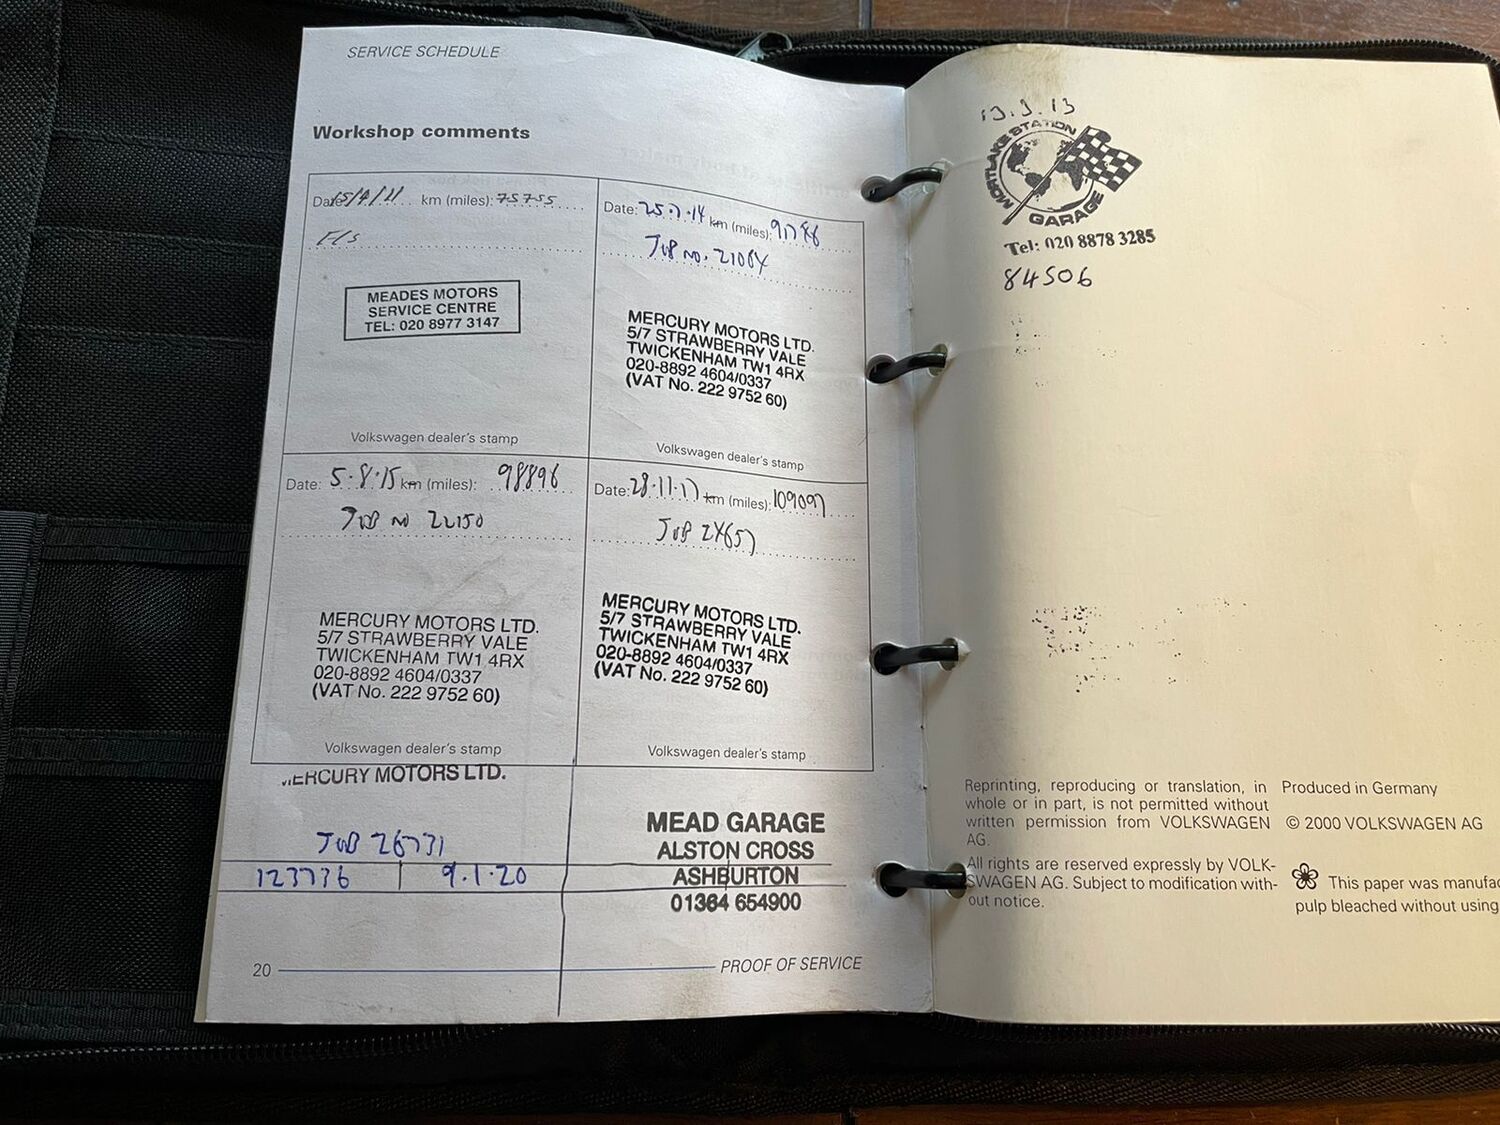 SERVICE SCHEDULE
Workshop comments
Date: km (miles): 75755
F/s
MEADES MOTORS
SERVICE CENTRE
TEL: 020 8977 3147
Volkswagen dealer's stamp
Date: 25.7.14 km (miles):
JOB NO. 21084
MERCURY MOTORS LTD.
5/7 STRAWBERRY VALE
TWICKENHAM TW1 4RX
020-8892 4604/0337
(VAT No. 222 9752 60)
Volkswagen dealer's stamp
Date: 5.8.15 km (miles): 98896
JOB NO 22150
MERCURY MOTORS LTD.
5/7 STRAWBERRY VALE
TWICKENHAM TW1 4RX
020-8892 4604/0337
(VAT No. 222 9752 60)
Volkswagen dealer's stamp
Date: 28.11.17 km (miles): 109097
JOB 24657
MERCURY MOTORS LTD.
5/7 STRAWBERRY VALE
TWICKENHAM TW1 4RX
020-8892 4604/0337
(VAT No. 222 9752 60)
Volkswagen dealer's stamp
MERCURY MOTORS LTD.
JOB 26731
123736 9.1.20
MEAD GARAGE
ALSTON CROSS
ASHBURTON
01364 654900
20 PROOF OF SERVICE
13.3.13
MORTLAKE STATION
GARAGE
Tel: 020 8878 3285
84506
Reprinting, reproducing or translation, in
whole or in part, is not permitted without
written permission from VOLKSWAGEN
AG.
All rights are reserved expressly by VOLK-
SWAGEN AG. Subject to modification with-
out notice.
Produced in Germany
© 2000 VOLKSWAGEN AG
This paper was manufac
pulp bleached without using